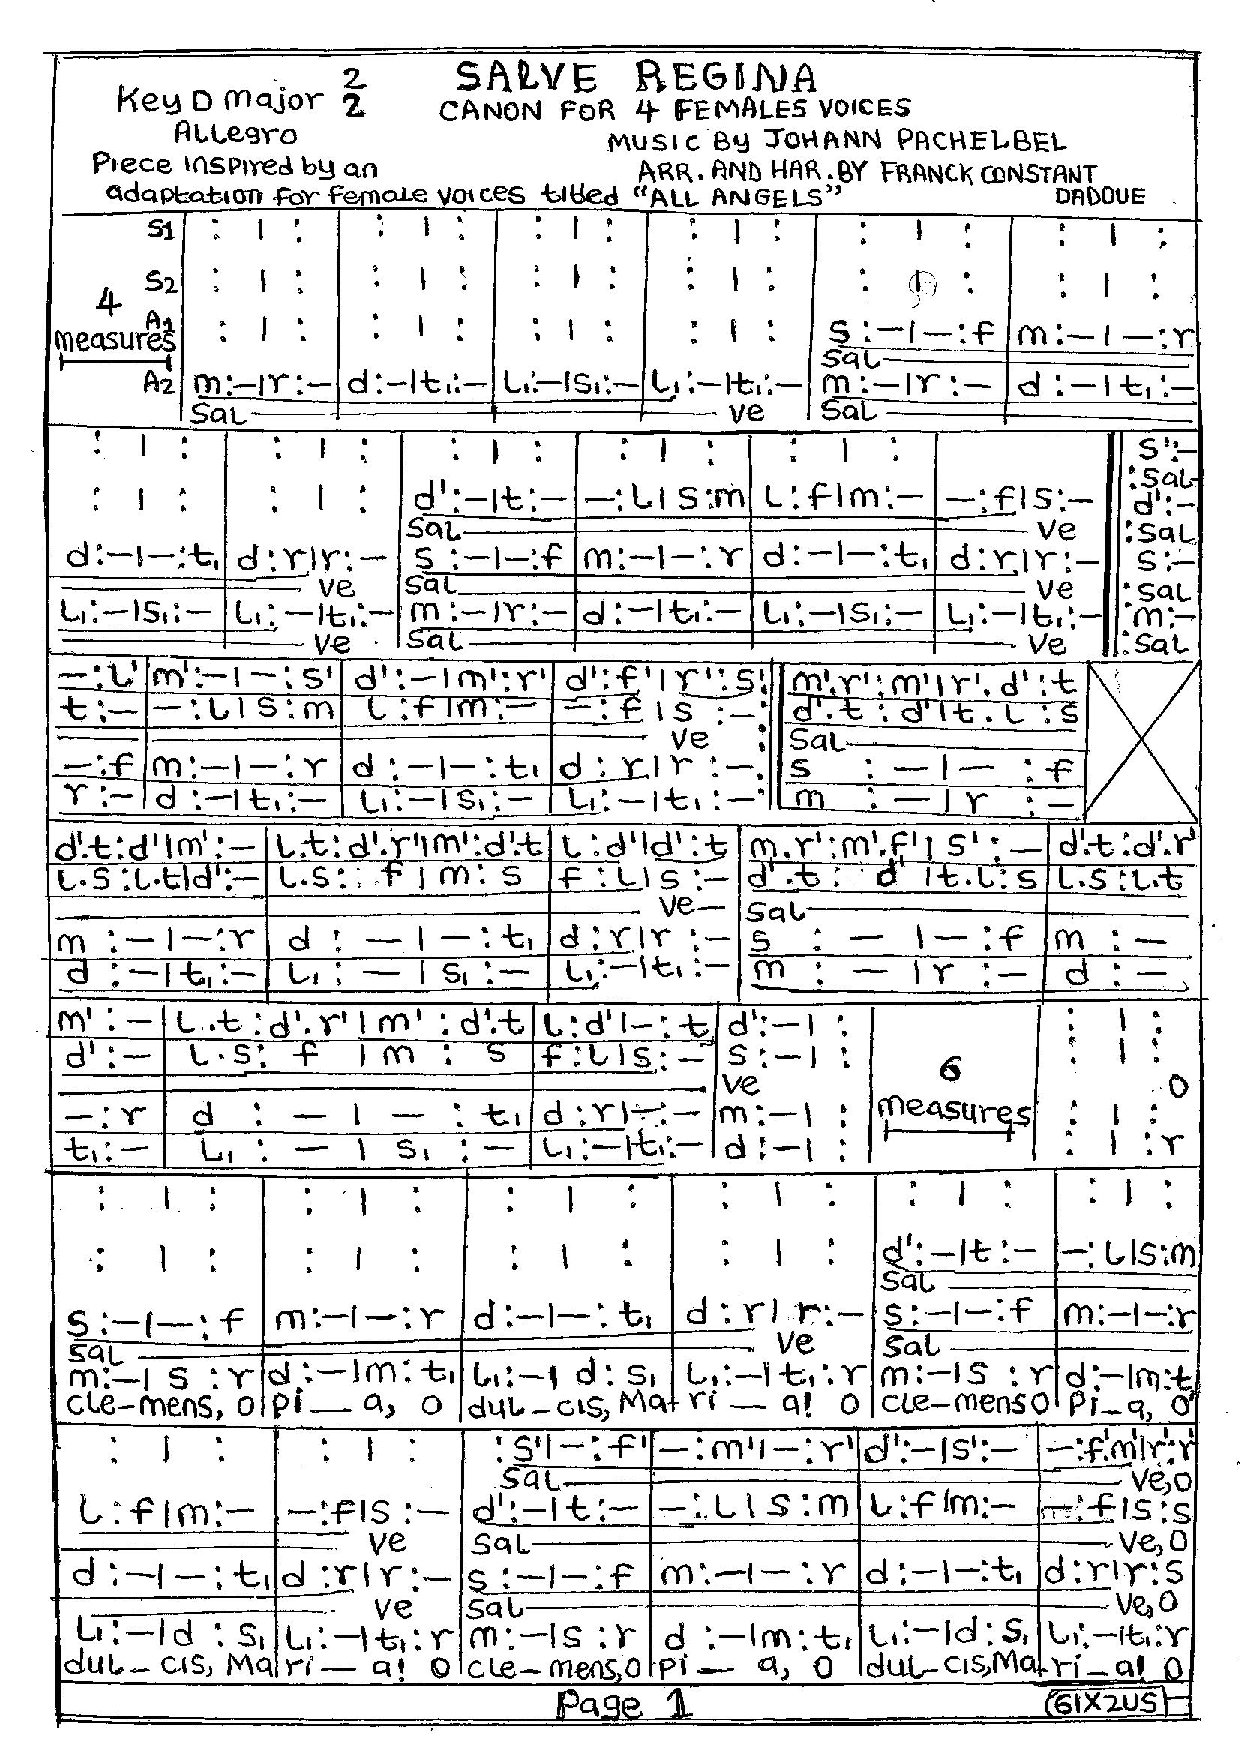 SALVE REGINA
Key D major 2/2
CANON FOR 4 FEMALES VOICES
ALLegro
MUSIC By JOHANN PACHELBEL
Piece inspired by an
ARR. AND HAR. BY FRANCK CONSTANT
adaptation for female voices titled "ALL ANGELS"
DADOUE
S1 : | : : | : : | : : | : : | : : | :
S2 : | : : | : : | : : | : : | : : | :
4 measures
A1 : | : : | : : | : : | : s:-|-:f m:-|-:r
Sal
A2 m:-|r:- d:-|t₁:- l₁:-|s₁:- l₁:-|t₁:- m:-|r:- d:-|t₁:-
Sal ve Sal
: | : : | : : | : : | : : | : s':-
:Sal
: | : : | : d':-|t:- -:l|s:m l:f|m:- -:f|s:- d':-
Sal ve :Sal
d:-|-:t₁ d:r|r:- s:-|-:f m:-|-:r d:-|-:t₁ d:r|r:- s:-
ve Sal ve :Sal
l₁:-|s₁:- l₁:-|t₁:- m:-|r:- d:-|t₁:- l₁:-|s₁:- l₁:-|t₁:- m:-
ve Sal ve :Sal
-:l' m':-|-:s' d':-|m':r' d':f'|r':s' m'.r':m'|r'.d':t
t:- -:l|s:m l:f|m:- -:f|s:- d'.t:d'|t.l:s
ve Sal
-:f m:-|-:r d:-|-:t₁ d:r|r:- s:-|-:f
r:- d:-|t₁:- l₁:-|s₁:- l₁:-|t₁:- m:-|r:-
d'.t:d'|m':- l.t:d'.r'|m':d'.t l:d'|d':t m.r':m'.f'|s':- d'.t:d'.r'
l.s:l.t|d':- l.s:f|m:s f:l|s:- d'.t:d'|t.l:s l.s:l.t
ve Sal
m:-|-:r d:-|-:t₁ d:r|r:- s:-|-:f m:-
d:-|t₁:- l₁:-|s₁:- l₁:-|t₁:- m:-|r:- d:-
m':- l.t:d'.r'|m':d'.t l:d'|-:t d':-|: : | :
d':- l.s:f|m:s f:l|s:- s:-|: : | :
ve 6 measures O
-:r d:-|-:t₁ d:r|-:- m:-|: : | :
t₁:- l₁:-|s₁:- l₁:-|t₁:- d:-|: : | :r
: | : : | : : | : : | : : | : : | :
: | : : | : : | : : | : d':-|t:- -:l|s:m
Sal
s:-|-:f m:-|-:r d:-|-:t₁ d:r|r:- s:-|-:f m:-|-:r
Sal ve Sal
m:-|s:r d:-|m:t₁ l₁:-|d:s₁ l₁:-|t₁:r m:-|s:r d:-|m:t₁
cle-mens, O pi_ a, O dul-cis, Mari_ a! O cle-mens O pi_a, O
: | : : | : :s'|-:f' -:m'|-:r' d':-|s':- -:f'.m'|r':r'
Sal ve, O
l:f|m:- -:f|s:- d':-|t:- -:l|s:m l:f|m:- -:f|s:s
ve Sal ve, O
d:-|-:t₁ d:r|r:- s:-|-:f m:-|-:r d:-|-:t₁ d:r|r:s
ve Sal ve, O
l₁:-|d:s₁ l₁:-|t₁:r m:-|s:r d:-|m:t₁ l₁:-|d:s₁ l₁:-|t₁:r
dul-cis, Mari_ a! O cle-mens, O pi_ a, O dul-cis, Mari_a! O
Page 1
(61X2US)